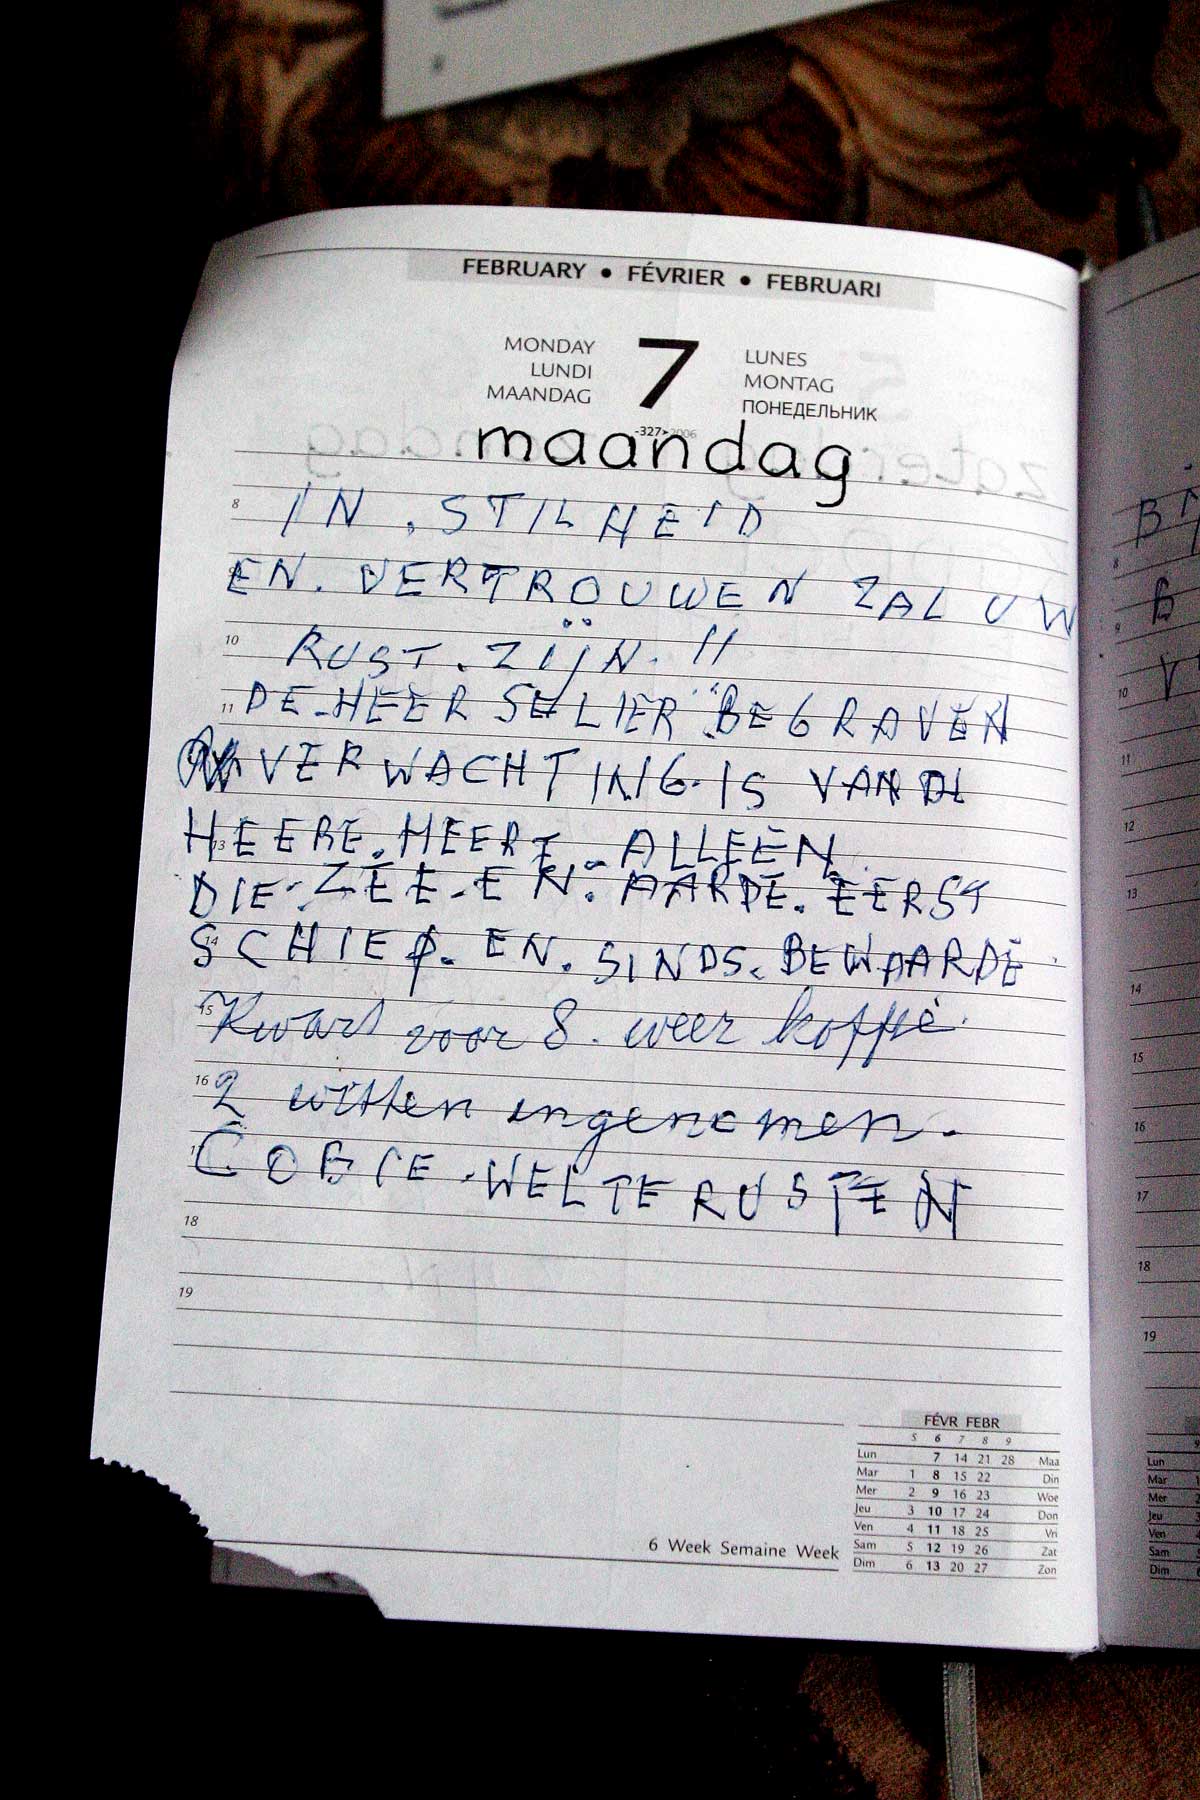 FEBRUARY • FÉVRIER • FEBRUARI
MONDAY
LUNDI
MAANDAG
7
LUNES
MONTAG
ПОНЕДЕЛЬНИК
-327➤2006
maandag
8 IN . STILHEID
9 EN. VERTROUWEN ZAL UW
10 RUST. ZIJN. !!
11 DE-HEER SELIER BEGRAVEN
VERWACHTING. IS VAN DE
13 HEERE. HEERE - ALLEEN.
DIE. ZEE-EN. AARDE. EERST
14 SCHIEP. EN. SINDS. BEWAARDE
15 Kwart voor 8. weer koffie.
16 2 witten ingenomen.
COBIE. WELTERUSTEN
18
19
FÉVR FEBR
5 6 7 8 9
Lun 7 14 21 28 Maa
Mar 1 8 15 22 Din
Mer 2 9 16 23 Woe
Jeu 3 10 17 24 Don
Ven 4 11 18 25 Vri
Sam 5 12 19 26 Zat
Dim 6 13 20 27 Zon
6 Week Semaine Week
8
9
10
11
12
13
14
15
16
17
18
19
Lun
Mar
Mer
Jeu
Ven
Sam
Dim